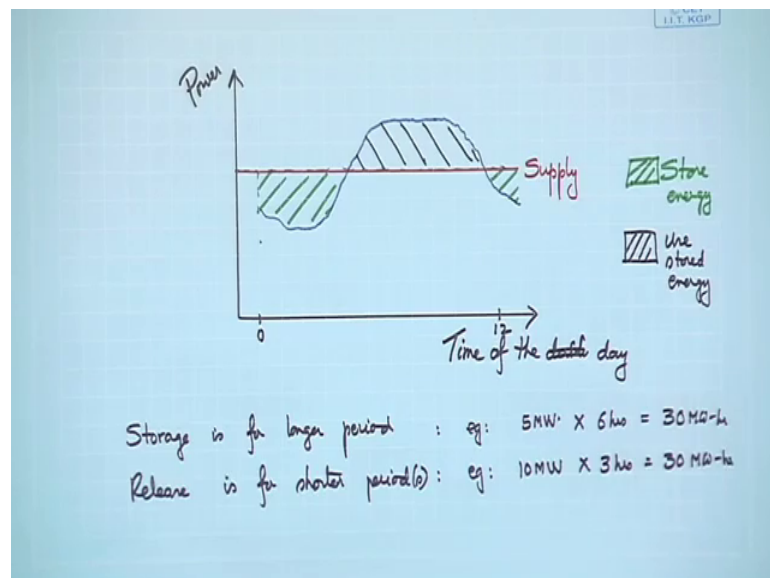 © CET
I.I.T. KGP
Power
Supply
Store
energy
Use
stored
energy
0
12
Time of the day
Storage is for longer period : eg: 5MW × 6 hrs = 30 MW-hr
Release is for shorter period(s) : eg: 10MW × 3 hrs = 30 MW-hr